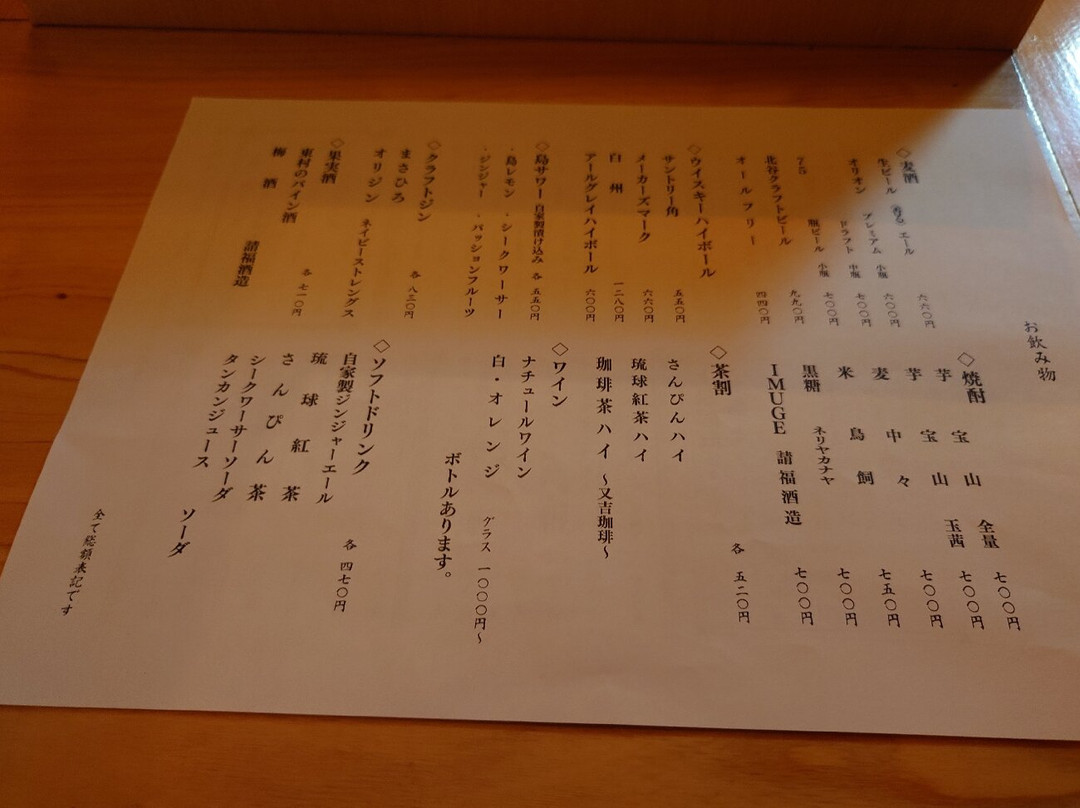 お飲み物
◇麦酒
生ビール 香るエール 六六〇円
プレミアム 小瓶 六〇〇円
オリオン ドラフト 中瓶 七〇〇円
瓶ビール 小瓶 七〇〇円
北谷クラフトビール 九九〇円
オールフリー 四四〇円
◇ウイスキーハイボール
サントリー角 五五〇円
メーカーズマーク 六六〇円
白州 一二八〇円
アールグレイハイボール 六〇〇円
◇島サワー 自家製漬け込み 各 五五〇円
・島レモン ・シークワーサー
・ジンジャー ・パッションフルーツ
◇クラフトジン
まさひろ 各 八三〇円
オリジン ネイビーストレングス
◇果実酒
東村のパイン酒 各 七一〇円
梅酒 請福酒造
◇焼酎
芋 宝山 全量 七〇〇円
芋 宝山 玉茜 七〇〇円
麦 中々 七〇〇円
米 鳥飼 七五〇円
黒糖 ネリヤカナヤ 七〇〇円
IMUGE 請福酒造 七〇〇円
◇茶割 各 五二〇円
さんぴんハイ
琉球紅茶ハイ
珈琲茶ハイ ～又吉珈琲～
◇ワイン
ナチュールワイン
白・オレンジ グラス 一〇〇〇円～
ボトルあります。
◇ソフトドリンク
自家製ジンジャーエール 各 四七〇円
琉球紅茶
さんぴん茶
シークワーサーソーダ
タンカンジュース ソーダ
全て総額表記です